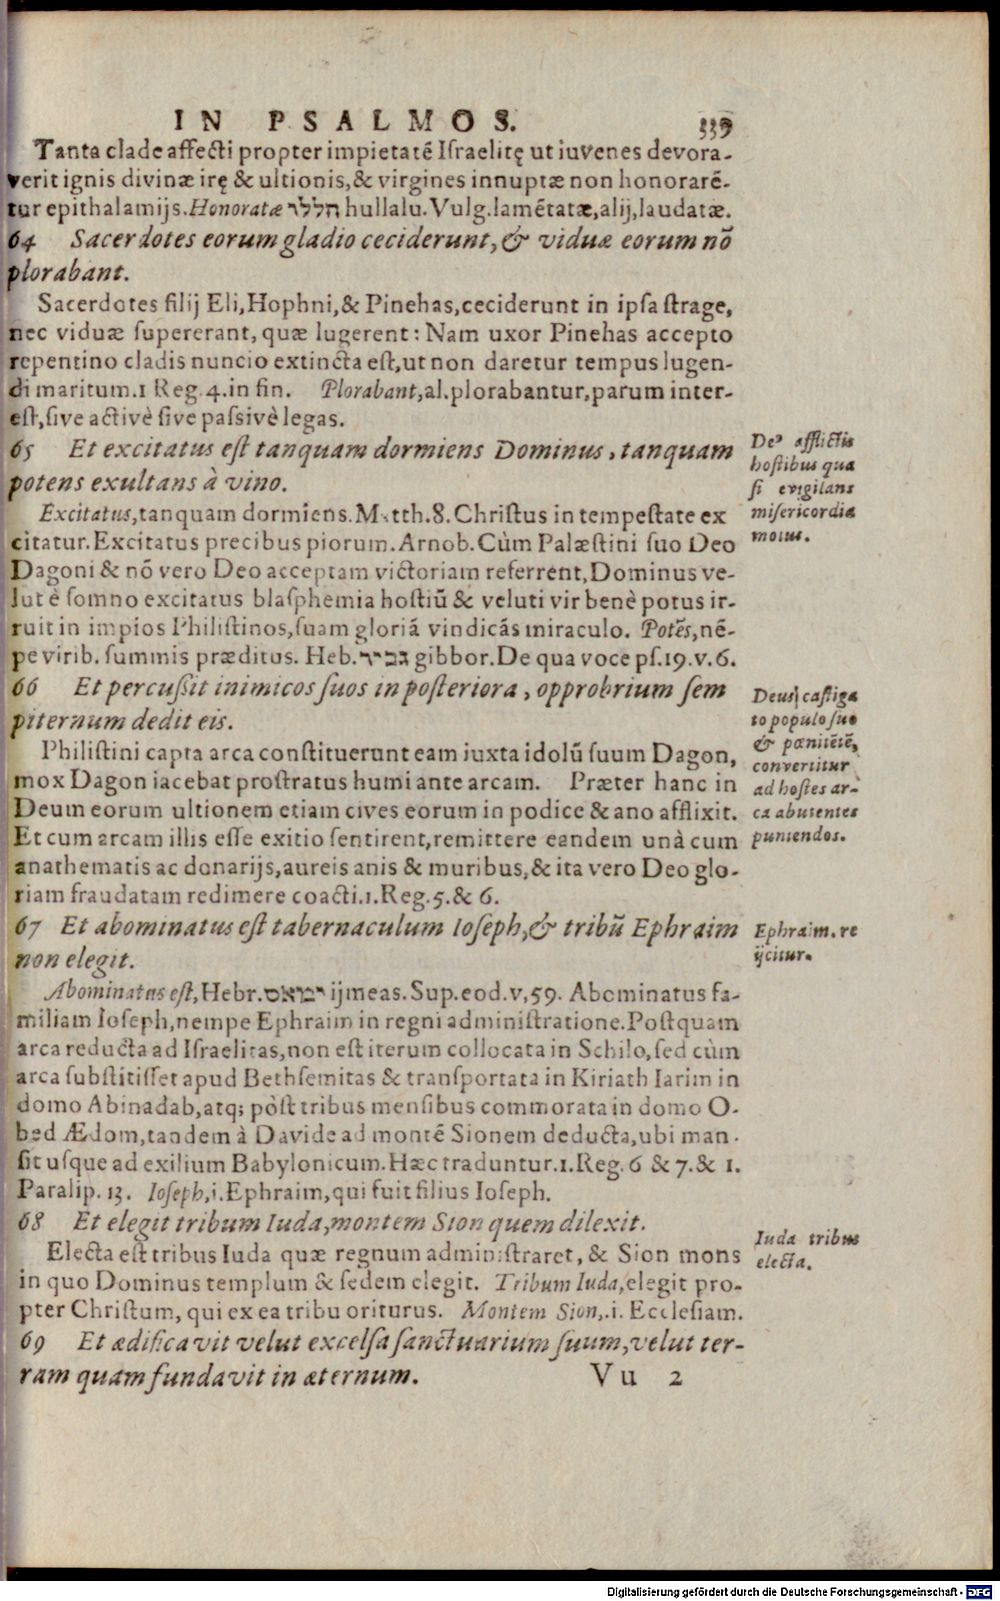 IN PSALMOS. 339
Tanta clade affecti propter impietatẽ Israelitę ut iuvenes devora-
verit ignis divinæ irę & ultionis, & virgines innuptæ non honorarẽ-
tur epithalamijs. Honoratæ הללו hullalu. Vulg. lamẽtatæ, alij, laudatæ.
64 Sacerdotes eorum gladio ceciderunt, & viduæ eorum nõ
plorabant.
Sacerdotes filij Eli, Hophni, & Pinehas, ceciderunt in ipsa strage,
nec viduæ supererant, quæ lugerent: Nam uxor Pinehas accepto
repentino cladis nuncio extincta est, ut non daretur tempus lugen-
di maritum. 1 Reg. 4. in fin. Plorabant, al. plorabantur, parum inter-
est, sive activè sive passivè legas.
65 Et excitatus est tanquam dormiens Dominus, tanquam
potens exultans à vino.
De⁹ afflictis
hostibus qua
si evigilans
misericordia
motus.
Excitatus, tanquam dormiens. Matth. 8. Christus in tempestate ex
citatur. Excitatus precibus piorum. Arnob. Cùm Palæstini suo Deo
Dagoni & nõ vero Deo acceptam victoriam referrent, Dominus ve-
lut è somno excitatus blasphemia hostiũ & veluti vir benè potus ir-
ruit in impios Philistinos, suam gloriã vindicãs miraculo. Potẽs, nẽ-
pe virib. summis præditus. Heb. גביר gibbor. De qua voce ps. 19. v. 6.
66 Et percussit inimicos suos in posteriora, opprobrium sem
piternum dedit eis.
Deus castiga
to populo suo
& pœnitẽtẽ,
convertitur
ad hostes ar-
ca abutentes
puniendos.
Philistini capta arca constituerunt eam iuxta idolũ suum Dagon,
mox Dagon iacebat prostratus humi ante arcam. Præter hanc in
Deum eorum ultionem etiam cives eorum in podice & ano afflixit.
Et cum arcam illis esse exitio sentirent, remittere eandem unà cum
anathematis ac donarijs, aureis anis & muribus, & ita vero Deo glo-
riam fraudatam redimere coacti. 1. Reg. 5. & 6.
67 Et abominatus est tabernaculum Ioseph, & tribũ Ephraim
non elegit.
Ephraim. re
ijcitur.
Abominatus est, Hebr. ימאס ijmeas. Sup. eod. v, 59. Abominatus fa-
miliam Ioseph, nempe Ephraim in regni administratione. Postquam
arca reducta ad Israelitas, non est iterum collocata in Schilo, sed cùm
arca substitisset apud Bethsemitas & transportata in Kiriath Iarim in
domo Abinadab, atq; pòst tribus mensibus commorata in domo O-
bed Ædom, tandem à Davide ad montẽ Sionem deducta, ubi man-
sit usque ad exilium Babylonicum. Hæc traduntur. 1. Reg. 6 & 7. & 1.
Paralip. 13. Ioseph, i. Ephraim, qui fuit filius Ioseph.
68 Et elegit tribum Iuda, montem Sion quem dilexit.
Iuda tribus
electa.
Electa est tribus Iuda quæ regnum administraret, & Sion mons
in quo Dominus templum & sedem elegit. Tribum Iuda, elegit pro-
pter Christum, qui ex ea tribu oriturus. Montem Sion, .i. Ecclesiam.
69 Et ædificavit velut excelsa sanctuarium suum, velut ter-
ram quam fundavit in æternum. Vu 2
Digitalisierung gefördert durch die Deutsche Forschungsgemeinschaft - DFG